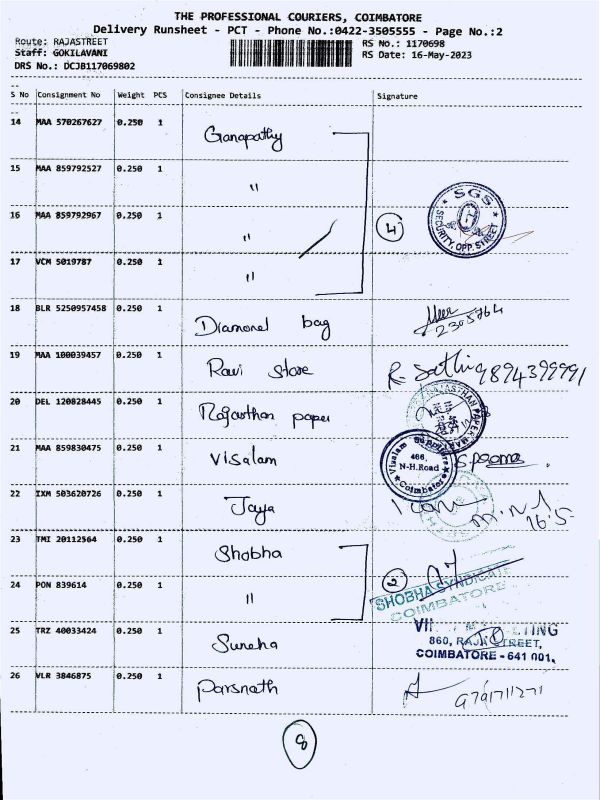 THE PROFESSIONAL COURIERS, COIMBATORE
Delivery Runsheet - PCT - Phone No.:0422-3505555 - Page No.:2
Route: RAJASTREET
RS No.: 1170698
Staff: GOKILAVANI
RS Date: 16-May-2023
DRS No.: DCJB117069802
S No Consignment No Weight PCS Consignee Details Signature
14 MAA 570267627 0.250 1 Ganapathy
15 MAA 859792527 0.250 1 "
SGS
SECURITY, OPP. STREET
16 MAA 859792967 0.250 1 " 4
17 VCM 5019787 0.250 1 "
18 BLR 5250957458 0.250 1 Diamond bag
19 MAA 100039457 0.250 1 Ravi Store R. Sathi 9894399991
20 DEL 120828445 0.250 1 Rajasthan paper
RAJASTHAN PAPER MART
21 MAA 859830475 0.250 1 Visalam
Visalam Suppliers
466,
N-H.Road
Coimbatore
22 IXM 503620726 0.250 1 Jaya
16.5
23 TMI 20112564 0.250 1 Shobha
24 PON 839614 0.250 1 " 2
SHOBHA SYNDICATE
COIMBATORE
25 TRZ 40033424 0.250 1 Sureha
860, RAJA STREET,
COIMBATORE - 641 001.
26 VLR 3846875 0.250 1 Parsnath 9791711271
8